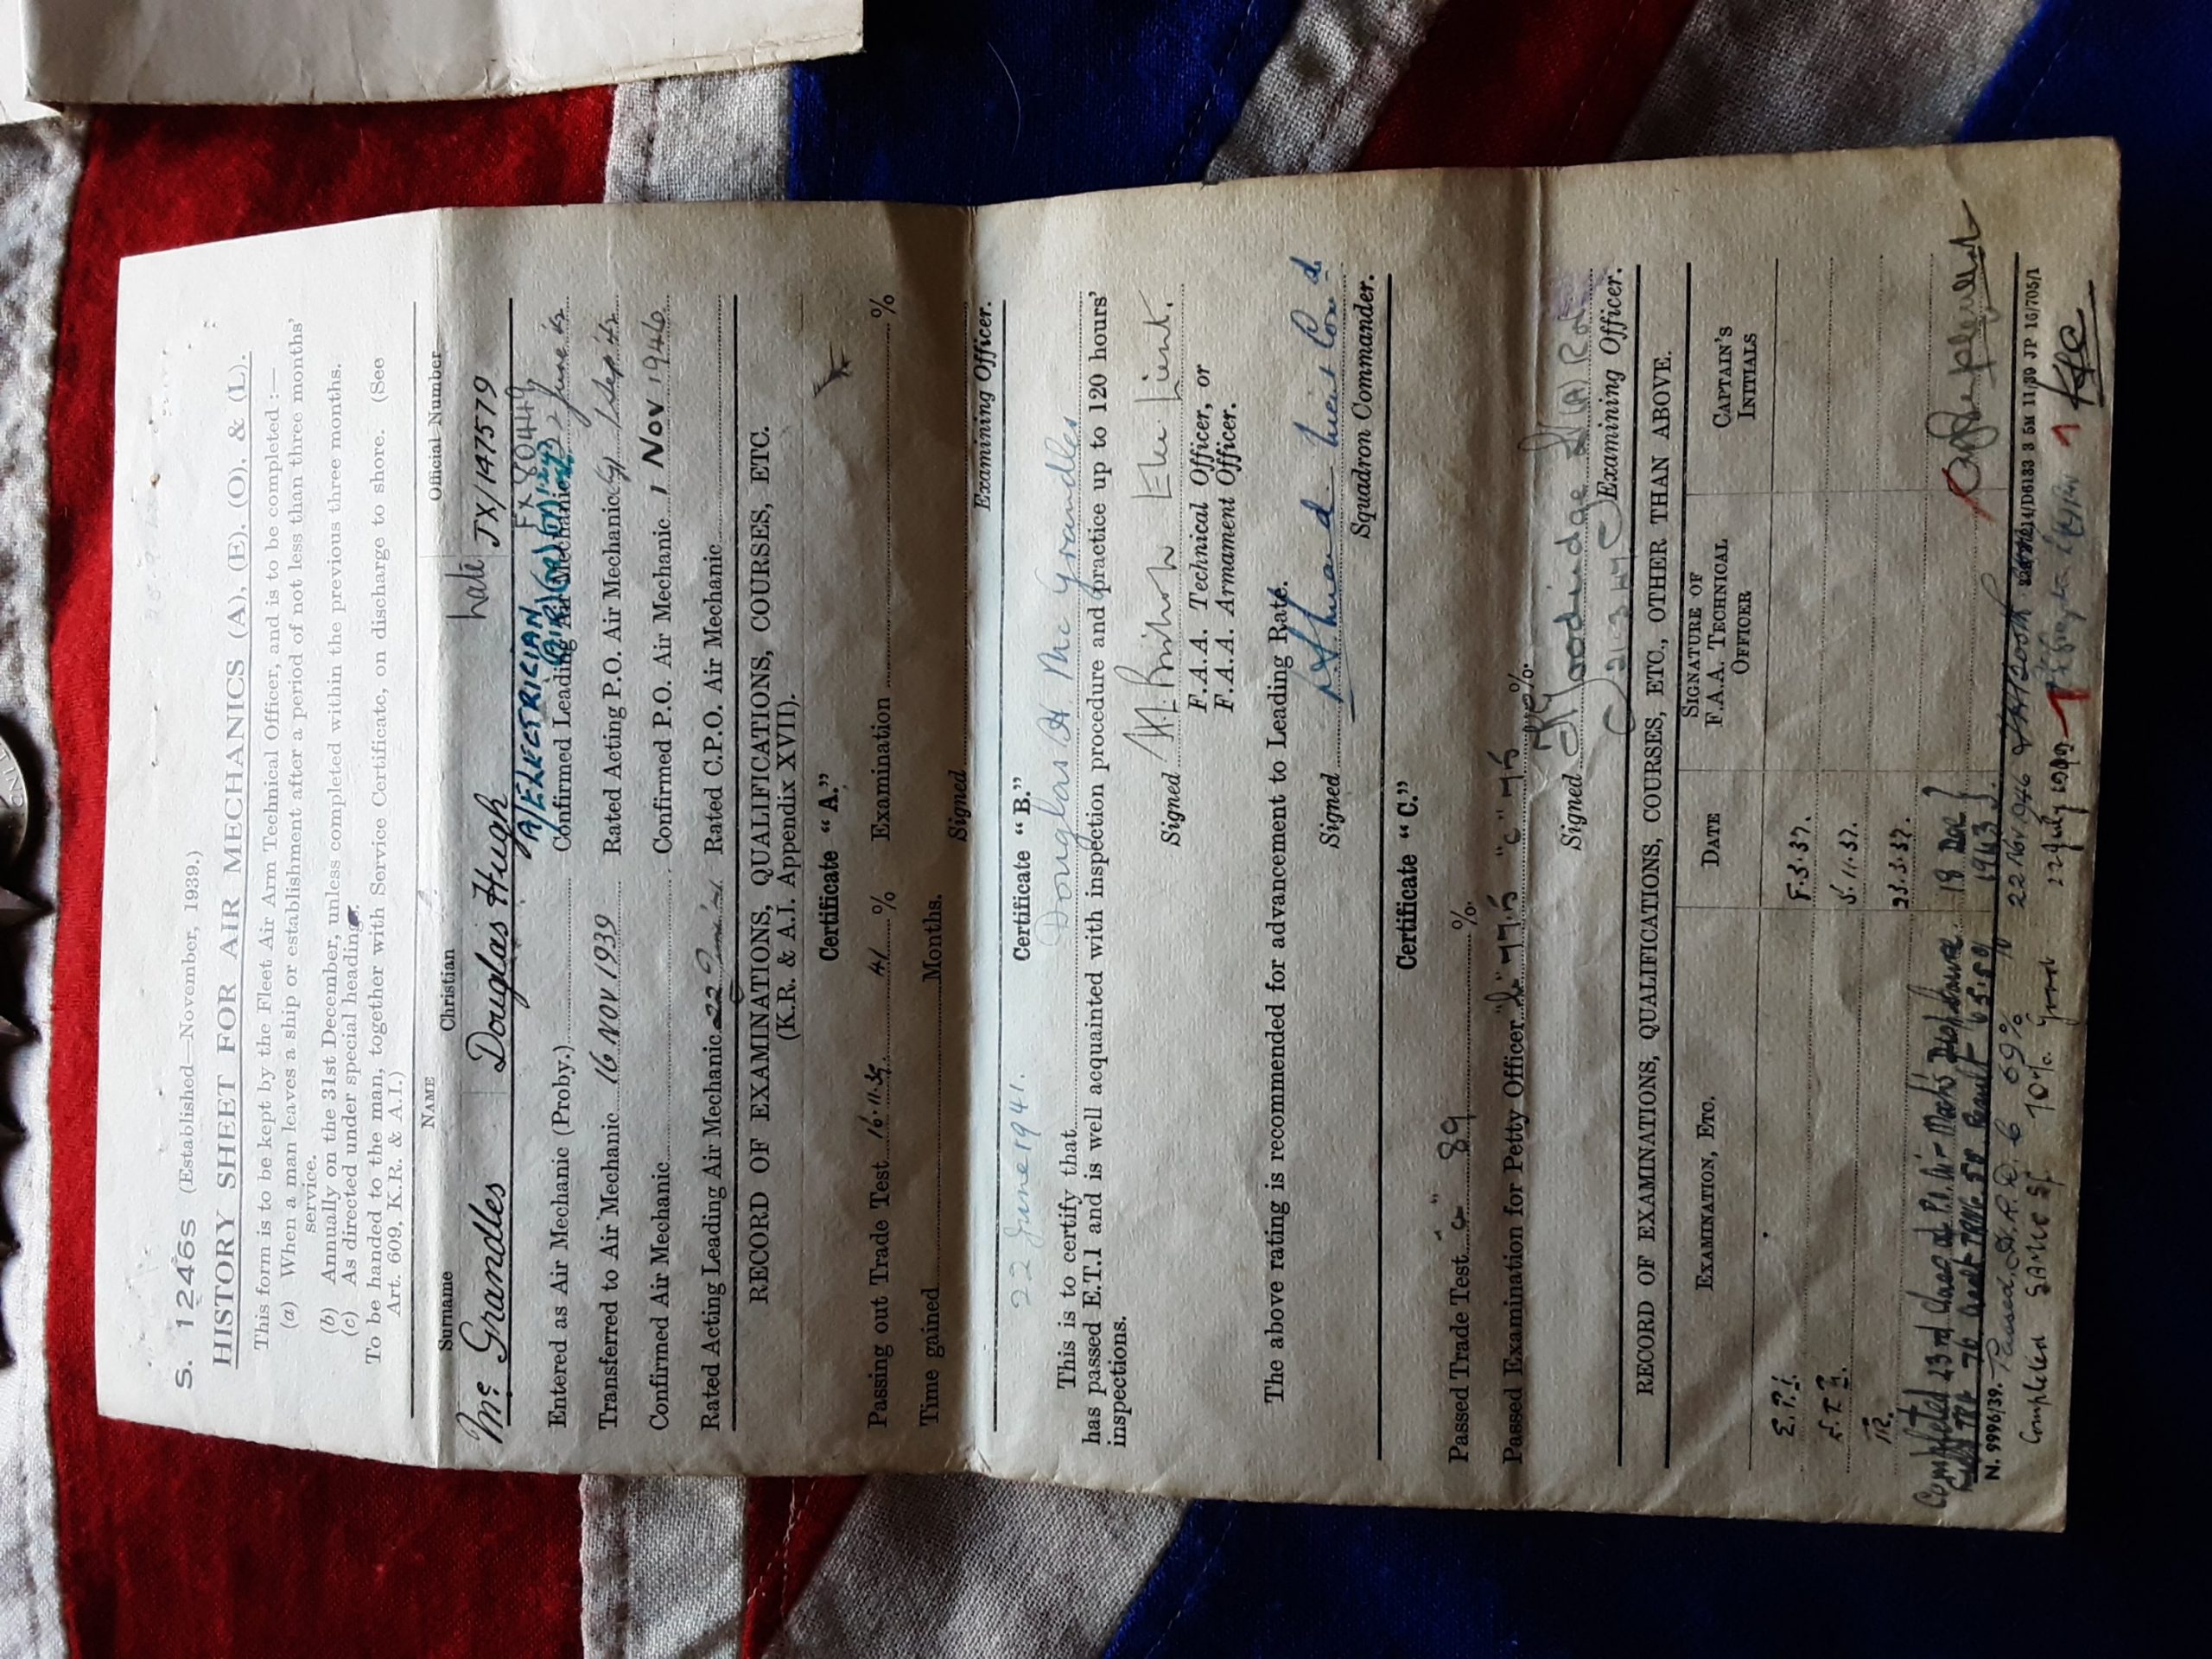 S. 1246s (Established—November, 1939.)
HISTORY SHEET FOR AIR MECHANICS (A), (E), (O), & (L).
This form is to be kept by the Fleet Air Arm Technical Officer, and is to be completed :—
(a) When a man leaves a ship or establishment after a period of not less than three months'
service.
(b) Annually on the 31st December, unless completed within the previous three months.
(c) As directed under special heading.
To be handed to the man, together with Service Certificate, on discharge to shore. (See
Art. 609, K.R. & A.I.)
NAME
Surname Christian Official Number
late
Mc Grandles Douglas Hugh JX/147579
FX 80449
A/ELECTRICIAN
Entered as Air Mechanic (Proby.) Confirmed Leading Air Mechanic 22 June 42
Transferred to Air Mechanic 16 NOV 1939 Rated Acting P.O. Air Mechanic 1 Sep 42
Confirmed Air Mechanic Confirmed P.O. Air Mechanic 1 Nov 1946
Rated Acting Leading Air Mechanic 22 June Rated C.P.O. Air Mechanic
RECORD OF EXAMINATIONS, QUALIFICATIONS, COURSES, ETC.
(K.R. & A.I. Appendix XVII).
Certificate "A."
Passing out Trade Test 16.11.39. 41 % Examination %
Time gained Months.
Signed
Examining Officer.
22 June 1941. Certificate "B."
This is to certify that Douglas H Mc Grandles
has passed E.T.I and is well acquainted with inspection procedure and practice up to 120 hours'
inspections.
Signed
F.A.A. Technical Officer, or
F.A.A. Armament Officer.
The above rating is recommended for advancement to Leading Rate.
Signed
Squadron Commander.
Certificate "C."
Passed Trade Test "C" 89 %.
Passed Examination for Petty Officer 77.5 "C" 75 %.
Signed
Examining Officer.
RECORD OF EXAMINATIONS, QUALIFICATIONS, COURSES, ETC., OTHER THAN ABOVE.
EXAMINATION, ETC. DATE SIGNATURE OF F.A.A. TECHNICAL OFFICER CAPTAIN'S INITIALS
E.T.1. 5.3.37.
E.T.2. 5.11.37.
TR. 23.3.37.
Completed 23rd Class at P.O. Air Mech's 18 Dec
1943
N. 9996/39. Passed 69% 22 Nov 1946 JP 16/705/1
Completed 70% Good 22 July